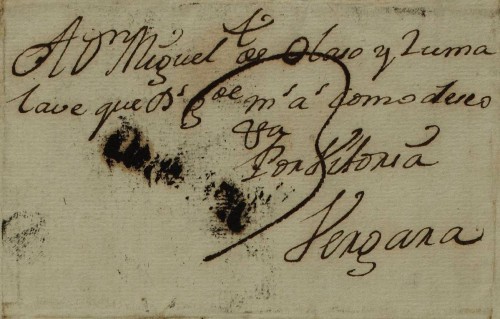 A Dn Miguel Jph de Olaso y Zuma
lave que Ds gde ms as como deseo
Por Vitoria
Vergara